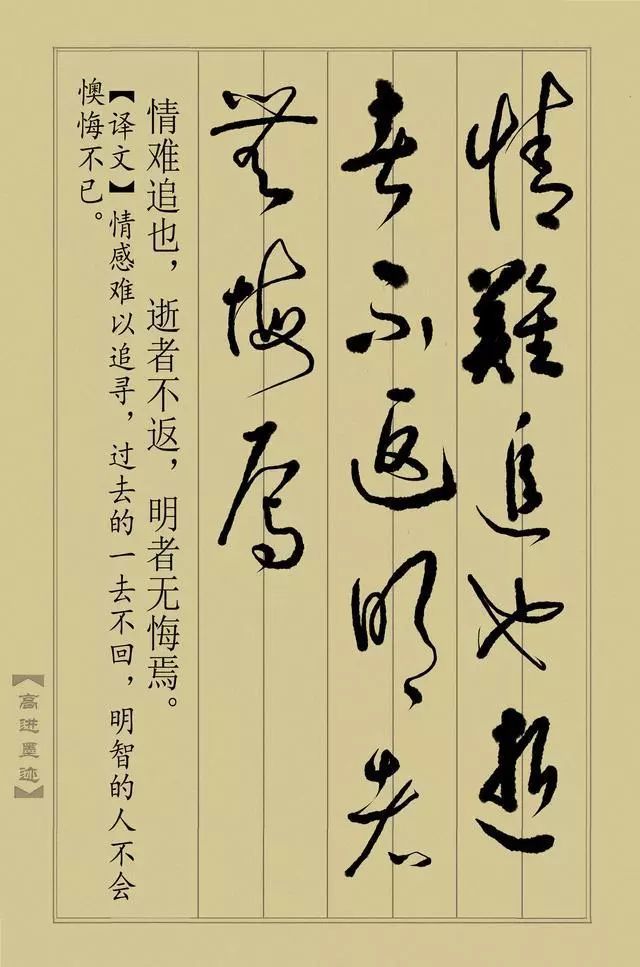 情難追也逝
者不返明者
無悔焉
情难追也，逝者不返，明者无悔焉。
【译文】情感难以追寻，过去的一去不回，明智的人不会
懊悔不已。
【高进墨迹】